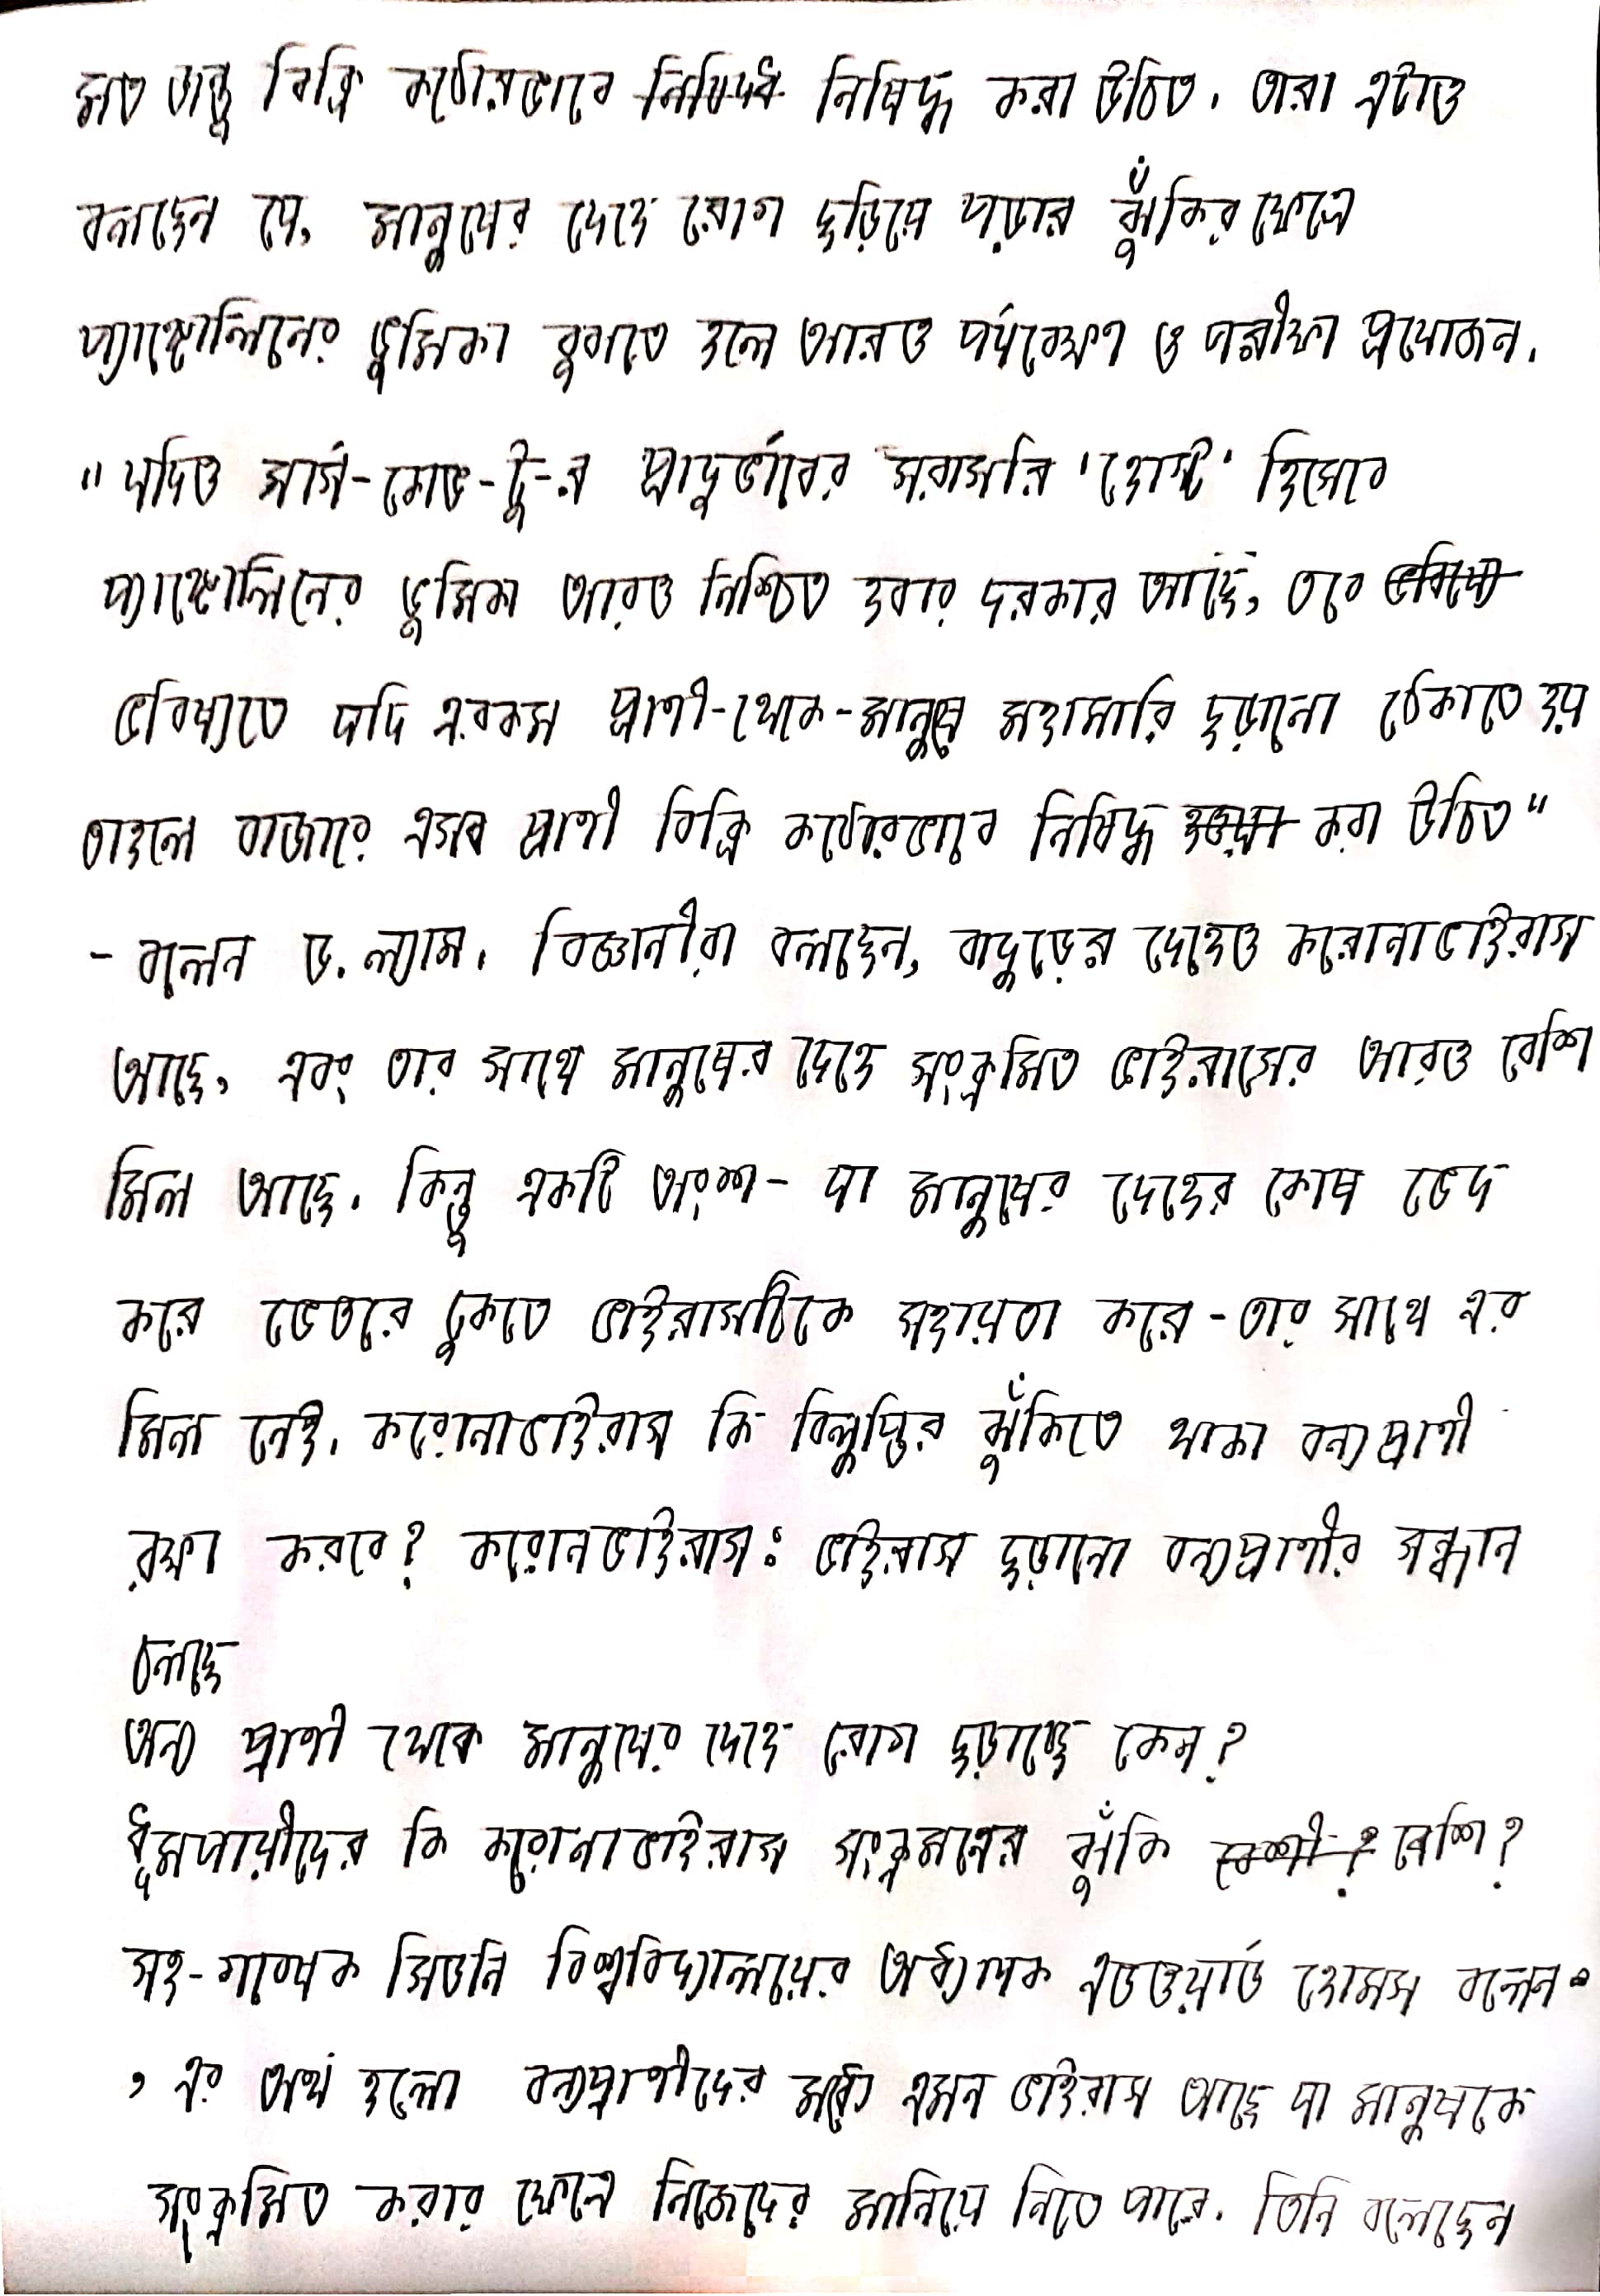 মত জন্তু বিক্রি কঠোরভাবে নিষিদধ নিষিদ্ধ করা উচিত. তারা এটাও
বলছেন যে, মানুষের দেহে রোগ ছড়িয়ে পড়ার ঝুঁকির ক্ষেত্রে
প্যাঙ্গোলিনের ভূমিকা বুঝতে হলে আরও পর্যবেক্ষণ ও পরীক্ষা প্রয়োজন.
"যদিও সার্স-কোভ-টু-র প্রাদুর্ভাবের সরাসরি 'হোস্ট' হিসেবে
প্যাঙ্গোলিনের ভূমিকা আরও নিশ্চিত হবার দরকার আছে, তবে ভবিষ্যে
ভবিষ্যতে যদি এরকম প্রাণী-থেকে-মানুষে মহামারি ছড়ানো ঠেকাতে হয়
তাহলে বাজারে এসব প্রাণী বিক্রি কঠোরভাবে নিষিদ্ধ হওয়া করা উচিত"
- বলেন ড. ল্যাম. বিজ্ঞানীরা বলছেন, বাদুড়ের দেহেও করোনাভাইরাস
আছে, এবং তার সাথে মানুষের দেহে সংক্রমিত ভাইরাসের আরও বেশি
মিল আছে. কিন্তু একটি অংশ- যা মানুষের দেহের কোষ ভেদ
করে ভেতরে ঢুকতে ভাইরাসটিকে সহায়তা করে-তার সাথে এর
মিল নেই. করোনাভাইরাস কি বিলুপ্তির ঝুঁকিতে থাকা বন্যপ্রাণী
রক্ষা করবে? করোনভাইরাস: ভাইরাস ছড়ানো বন্যপ্রাণীর সন্ধান
চলছে
অন্য প্রাণী থেকে মানুষের দেহে রোগ ছড়াচ্ছে কেন?
ধূমপায়ীদের কি করোনাভাইরাস সংক্রমনের ঝুঁকি বেশী? বেশি?
সহ-গবেষক সিডনি বিশ্ববিদ্যালয়ের অধ্যাপক এডওয়ার্ড হোমস বলেন.
, এর অর্থ হলো বন্যপ্রাণীদের মধ্যে এমন ভাইরাস আছে যা মানুষকে
সংক্রমিত করার ক্ষেত্রে নিজেদের মানিয়ে নিতে পারে. তিনি বলেছেন